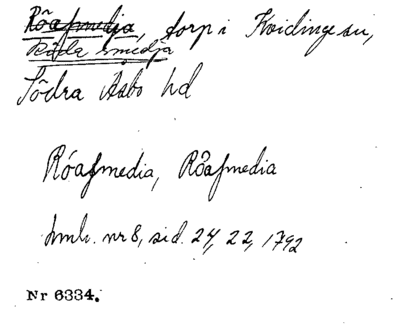 Röafmedja, torp i Kvidinge sn,
Röda smedja
Södra Åsbo hd
Róafmedia, Röafmedia
hmlr. nr 8, sid. 24, 22, 1792
Nr 6334.